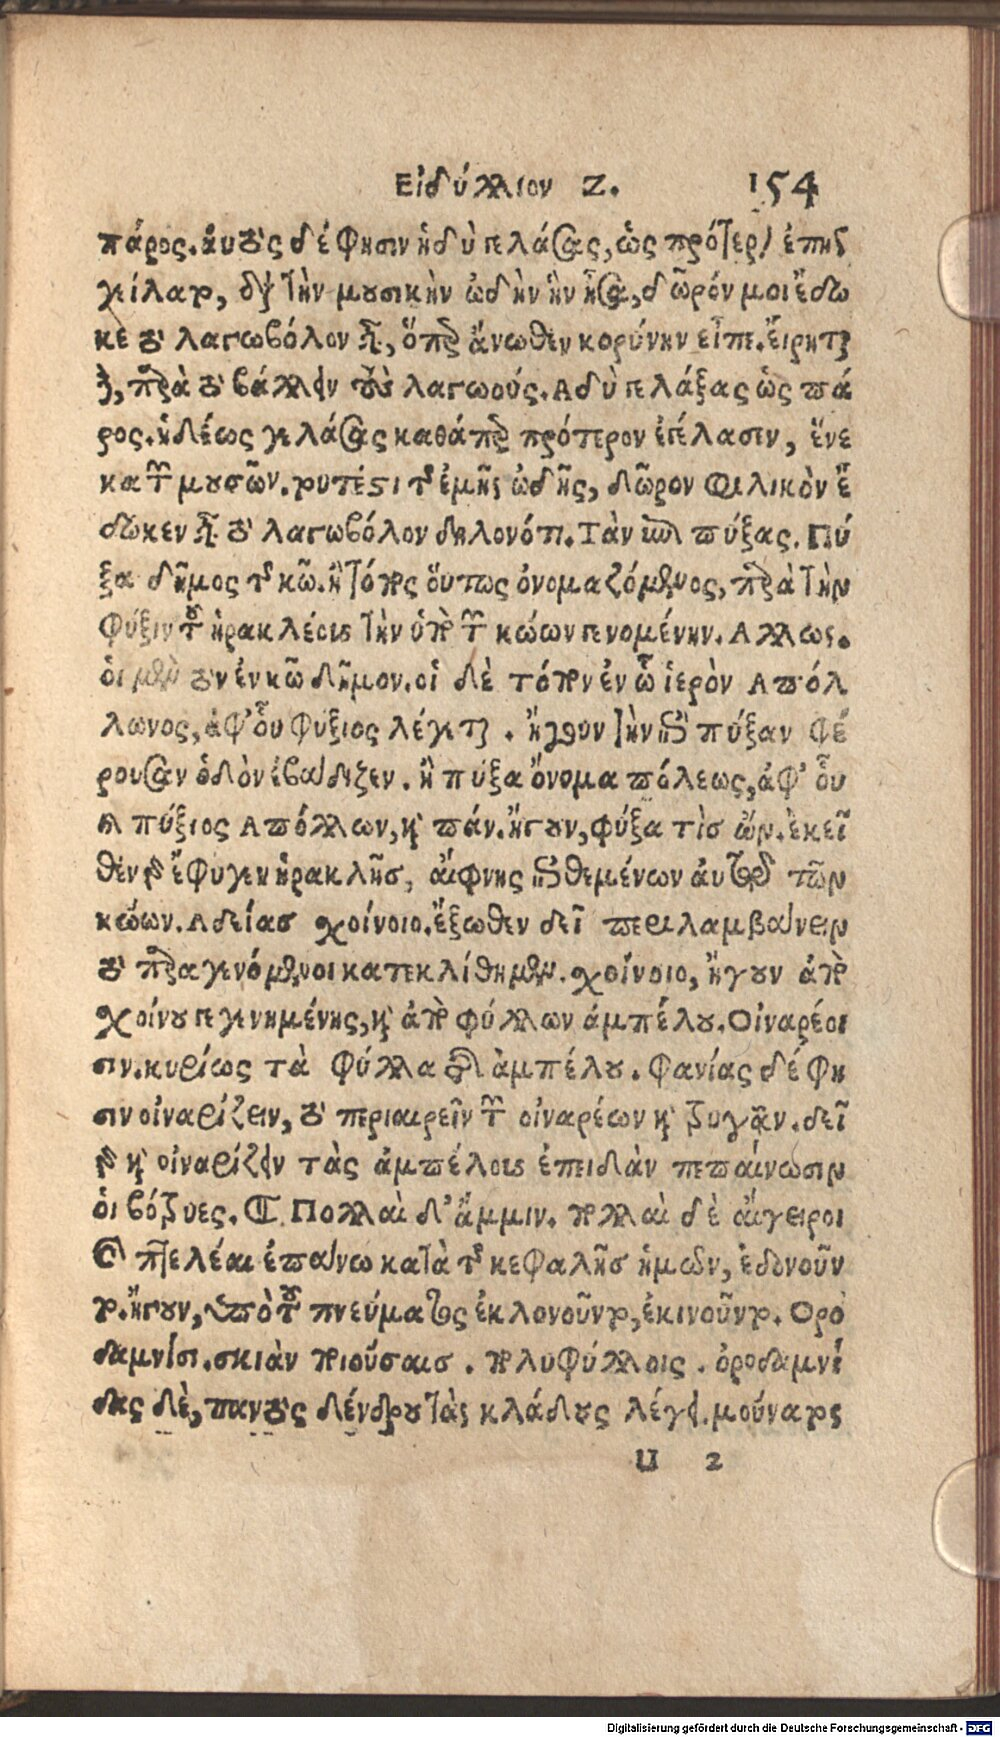 Εἰδύλλιον Ζ. 154
πάρος. αὐτὸς δέ φησιν ἡδὺ γελάσας, ὡς πρότερον ἐπηγ
γείλατο, διὰ τὴν μουσικὴν ᾠδὴν ἣν ᾖσα, δῶρόν μοι ἔδω
κε τὸ λαγωβόλον ὅπερ ἄνωθεν κορύνην εἶπε. εἴρηται
δὲ, παρὰ τὸ βάλλειν τοὺς λαγωούς. Αδὺ γελάξας ὡς πά
ρος. ἡδέως γελάσας καθάπερ πρότερον ἐγέλασεν, ἕνε
κα τῶν μουσῶν. τουτέστι τῆς ἐμῆς ᾠδῆς, δῶρον φιλικὸν ἔ
δωκεν τὸ λαγωβόλον δηλονότι. Τὰν ἐπὶ πύξας. Πύ
ξα δῆμος τῆς κῶ. ἢ τόπος οὕτως ὀνομαζόμενος, παρὰ τὴν
φύξιν τοῦ ἡρακλέους τὴν ὑπὸ τῶν κώων γενομένην. Αλλως.
οἱ μὲν οὖν ἐν κῶ δῆμον. οἱ δὲ τόπον ἐν ᾧ ἱερὸν Απόλ
λωνος, ἀφ' οὗ φύξιος λέγεται. ἤγουν τὴν ἐπὶ πύξαν φέ
ρουσαν ὁδὸν ἐβάδιζεν. ἢ πύξα ὄνομα πόλεως, ἀφ' οὗ
πύξιος Απόλλων, καὶ πάν. ἤγουν, φύξα τὶς ὤν. ἐκεῖ
θεν γὰρ ἔφυγεν ἡρακλῆς, αἴφνης ἐπιθεμένων αὐτῷ τῶν
κώων. Αδείας χοίνοιο. ἔξωθεν δεῖ περιλαμβάνειν
τὸ παραγενόμενοι κατεκλίθημεν. χοίνοιο, ἤγουν ἀπὸ
χοίνου γεγενημένης, καὶ ἀπὸ φύλλων ἀμπέλου. Οἰναρέοι
σιν. κυρίως τὰ φύλλα τῆς ἀμπέλου. Φανίας δέ φη
σιν οἰναρίζειν, τὸ περιαιρεῖν τῶν οἰναρέων καὶ τρυγᾶν. δεῖ
γὰρ καὶ οἰναρίζειν τὰς ἀμπέλους ἐπειδὰν πεπαίνωσιν
οἱ βότρυες. ¶ Πολλαὶ δ' ἄμμιν. πολλαὶ δὲ αἴγειροι
καὶ πτελέαι ἐπάνω κατὰ τῆς κεφαλῆς ἡμῶν, ἐδονοῦν
το. ἤγουν, ὑπὸ τοῦ πνεύματος ἐκλονοῦντο, ἐκινοῦντο. Ορο
δαμνίσι. σκιὰν ποιούσαις. πολυφύλλοις. ὀροδαμνί
δας δὲ, παντὸς δένδρου τὰς κλάδους λέγει. μούναρς
U 2
Digitalisierung gefördert durch die Deutsche Forschungsgemeinschaft - DFG